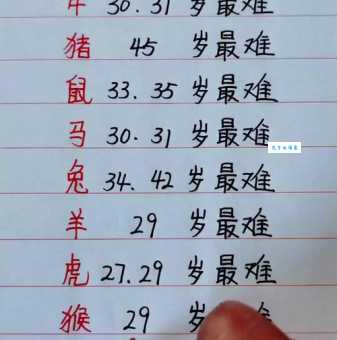 牛 30.31 岁最难
猪 45 岁最难
鼠 33.35 岁最难
马 30.31 岁最难
兔 34.42 岁最难
羊 29 岁最难
虎 27.29 岁最难
猴 29 岁